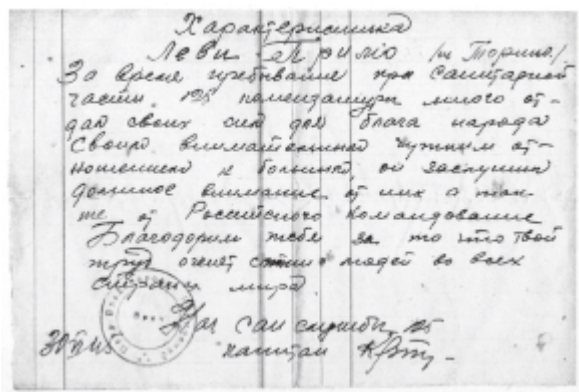 Характеристика
Леви Примо /г. Торино/
За время пребывание при санитарной
части 125 комендатуры много от-
дал своих сил для блага народа
Своим внимательным чутким от-
ношением к больным он заслужил
должное внимание от них а так-
же от Российского командование
Благодарим тебя за то что твой
труд оценят сотни людей во всех
странах мира
Нач сан службы 125
капитан